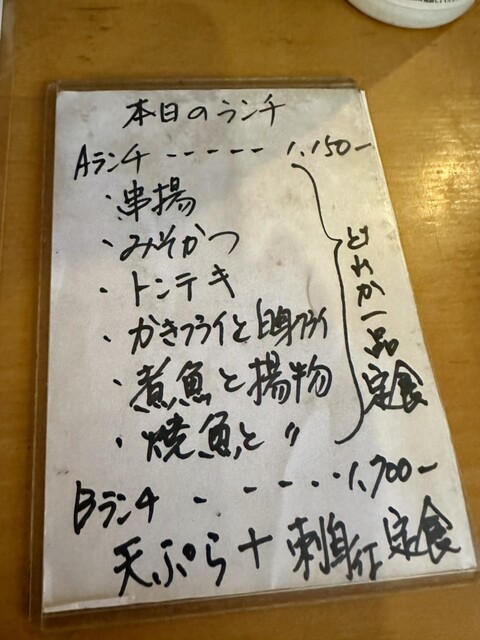 本日のランチ
Aランチ ----- 1,150-
・串揚
・みそかつ
・トンテキ
・かきフライと白身フライ
・煮魚と揚物
・焼魚と 〃
どれか一品定食
Bランチ - - - - - 1,700-
天ぷら+刺身付定食